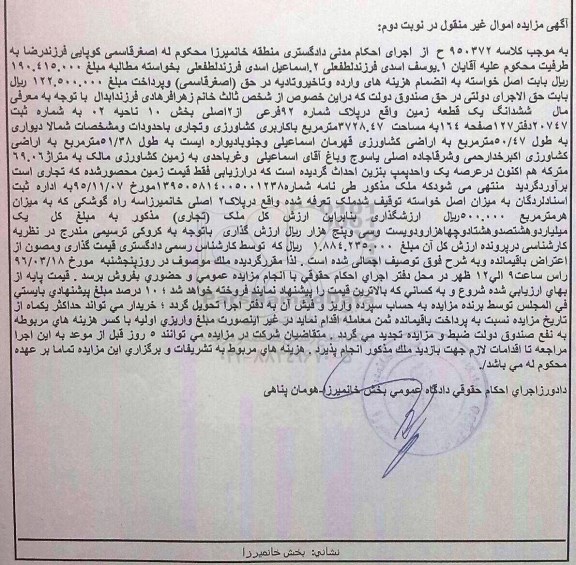 آگهی مزایده اموال غیر منقول در نوبت دوم:
به موجب کلاسه ۹۵۰۳۷۲ ح از اجرای احکام مدنی دادگستری منطقه خانمیرزا محکوم له اصغرقاسمی کوپایی فرزندرضا به
طرفیت محکوم علیه آقایان ۱.یوسف اسدی فرزندلطفعلی ۲.اسماعیل اسدی فرزندلطفعلی بخواسته مطالبه مبلغ ۱۹۰.۴۱۵.۰۰۰
ریال بابت اصل خواسته به انضمام هزینه های وارده وتاخیروتادیه در حق (اصغرقاسمی) وپرداخت مبلغ ۱۲۲.۵۰۰.۰۰۰ ریال
بابت حق الاجرای دولتی در حق صندوق دولت که دراین خصوص از شخص ثالث خانم زهرافرهادی فرزندابدال با توجه به معرفی
مال ششدانگ یک قطعه زمین واقع درپلاک شماره ۹۲فرعی از۲اصلی بخش ۱۰ ناحیه ۰۲ به شماره ثبت
۲۰۷۴۷دفتر۱۲۷صفحه ۱۶۴به مساحت ۳۷۲۸.۴۷مترمربع باکاربری کشاورزی وتجاری باحدودات ومشخصات شمالا دیواری
به طول ۵۰/۴۷مترمربع به اراضی کشاورزی قهرمان اسماعیلی وجنوبادیواره ایست به طول ۵۱/۳۸مترمربع به اراضی
کشاورزی اکبرخدارحمی وشرقاجاده اصلی یاسوج وباغ آقای اسماعیلی وغرباحدی به زمین کشاورزی مالک به متراژ۶۹.۰۶
مترکه هم اکنون درعرصه یک واحدپمپ بنزین احداث گردیده است که درارزیابی فقط قیمت زمین محصورشده که تجاری است
برآوردگردید منتهی می شودکه ملک مذکور طی نامه شماره۱۳۹۵۰۵۸۱۴۰۰۵۰۰۱۲۳۸مورخ ۹۵/۱۱/۰۷به اداره ثبت
اسنادلردگان به میزان اصل خواسته توقیف بازداشت گرفته شده واقع درپلاک۲ اصلی خانمیرزاسه راه گوشکی که به میزان
هرمترمربع ۵۰۰.۰۰۰ریال ارزشگذاری بنابراین ارزش کل ملک (تجاری) مذکور به مبلغ کل یک
میلیاردوهشتصدوهشتادوچهاهزارودویست وسی وپنج هزار ریال ارزش گذاری باتوجه به کروکی ترسیمی مندرج در نظریه
کارشناسی درپرونده ارزش کل آن مبلغ ۱.۸۸۴.۲۳۵.۰۰۰ ریال که توسط کارشناس رسمی دادگستری قیمت گذاری ومصون از
اعتراض باقیمانده وبه شرح فوق توصیف اجمالی شده است . لذا مقررگردیده ملک موصوف در روزپنجشنبه مورخ ۹۶/۰۳/۱۸
راس ساعت۹ الی۱۲ ظهر در محل دفتر اجراي احكام حقوقي با انجام مزايده عمومي و حضوري بفروش برسد . قيمت پايه از
بهاي ارزيابي شده شروع و به كساني كه بالاترين قيمت را پيشنهاد نمايند فروخته خواهد شد ؛ ۱۰ درصد مبلغ پيشنهادي بايستي
في المجلس توسط برنده مزايده به حساب سپرده واريز و فيش آن به دفتر اجرا تحويل گردد ؛ خريدار مي تواند حداكثر يكماه از
تاريخ مزايده نسبت به پرداخت باقيمانده ثمن معامله اقدام نمايد در غير اينصورت مبلغ واريزي اوليه با كسر هزينه هاي مربوطه
به نفع صندوق دولت ضبط و مزايده تجديد مي گردد . متقاضيان شركت در مزايده مي توانند ۵ روز قبل از موعد به اين اجرا
مراجعه تا اقدامات لازم جهت بازديد ملک مذكور انجام پذيرد . هزينه هاي مربوط به تشريفات و برگزاري اين مزايده تماما بر عهده
محكوم له مي باشد/.
دادورزاجراي احكام حقوقي دادگاه عمومي بخش خانميرزا-هومان پناهی
نشانی: بخش خانمیرزا